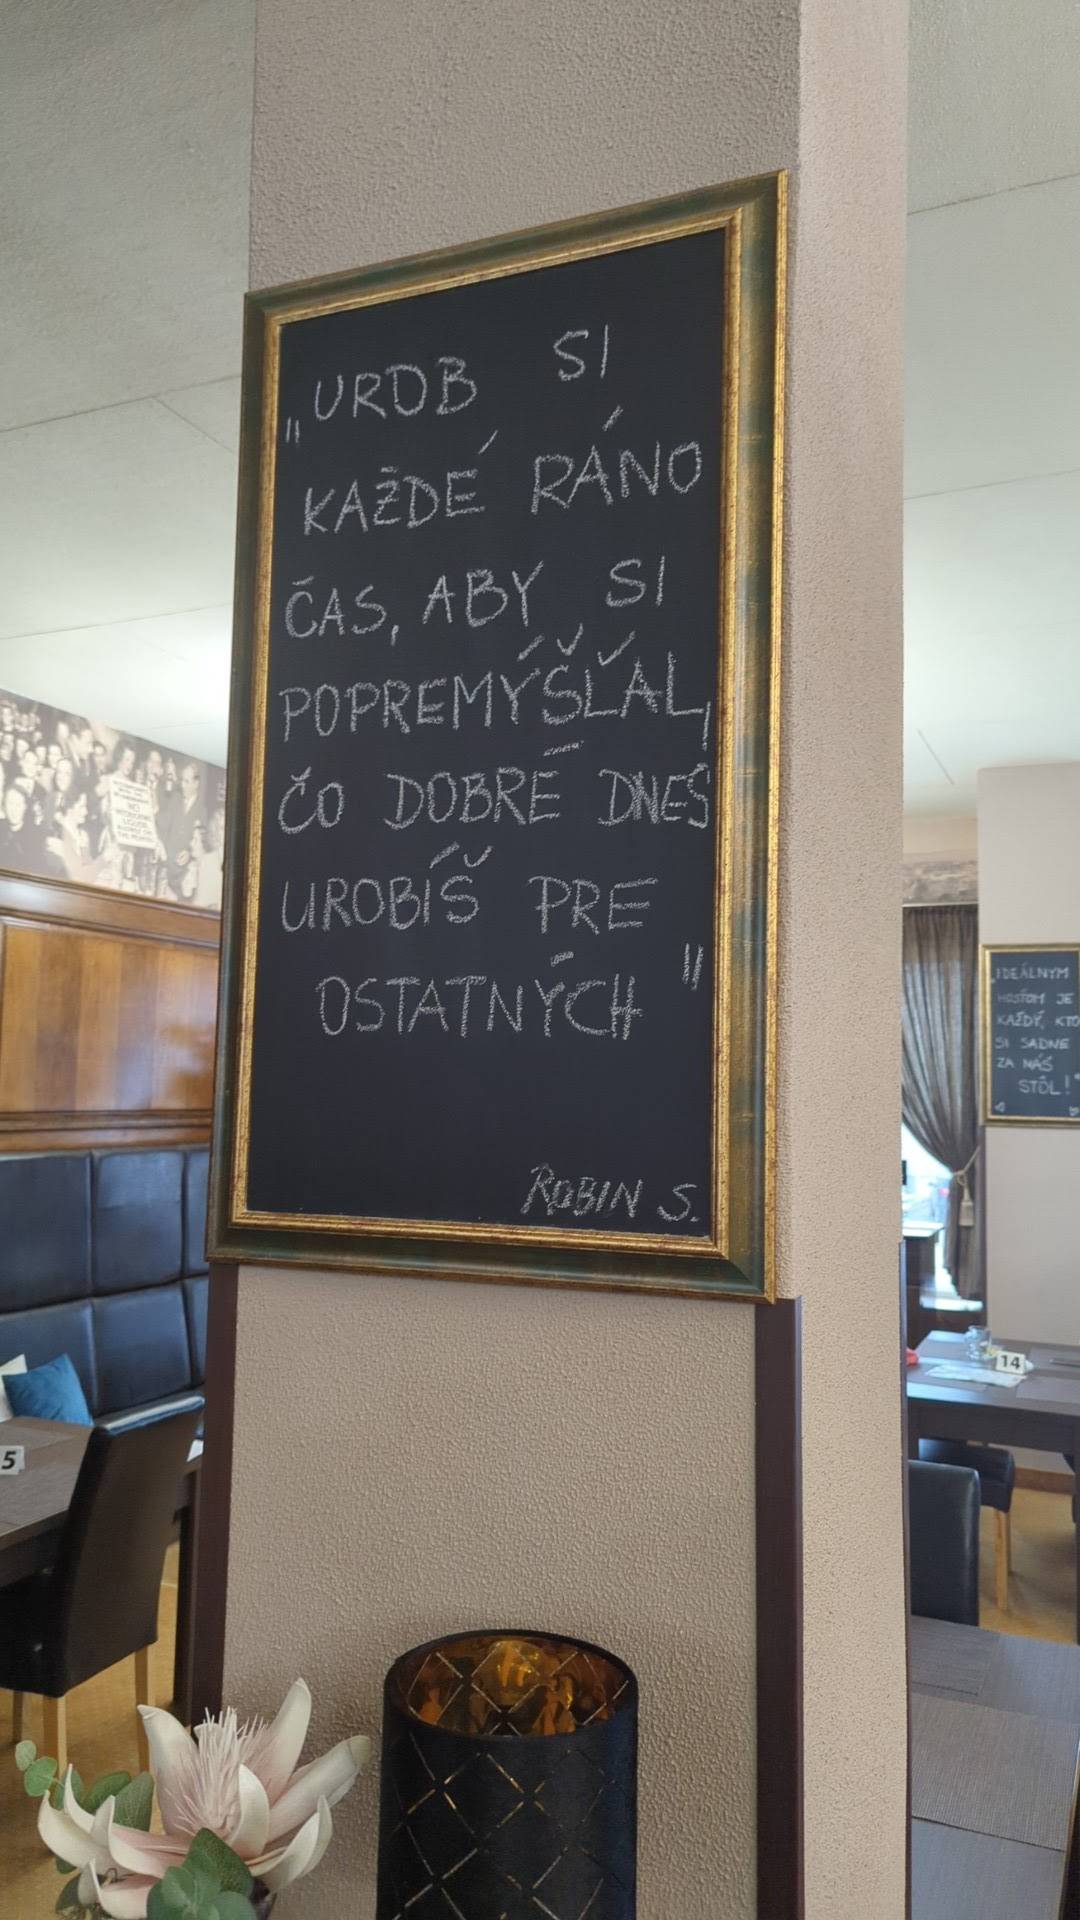 „UROB SI
KAŽDÉ RÁNO
ČAS, ABY SI
POPREMÝŠĽAL,
ČO DOBRÉ DNES
UROBÍŠ PRE
OSTATNÝCH"
ROBIN S.
„IDEÁLNYM
HOSŤOM JE
KAŽDÝ, KTO
SI SADNE
ZA NÁŠ
STÔL!"
14
5